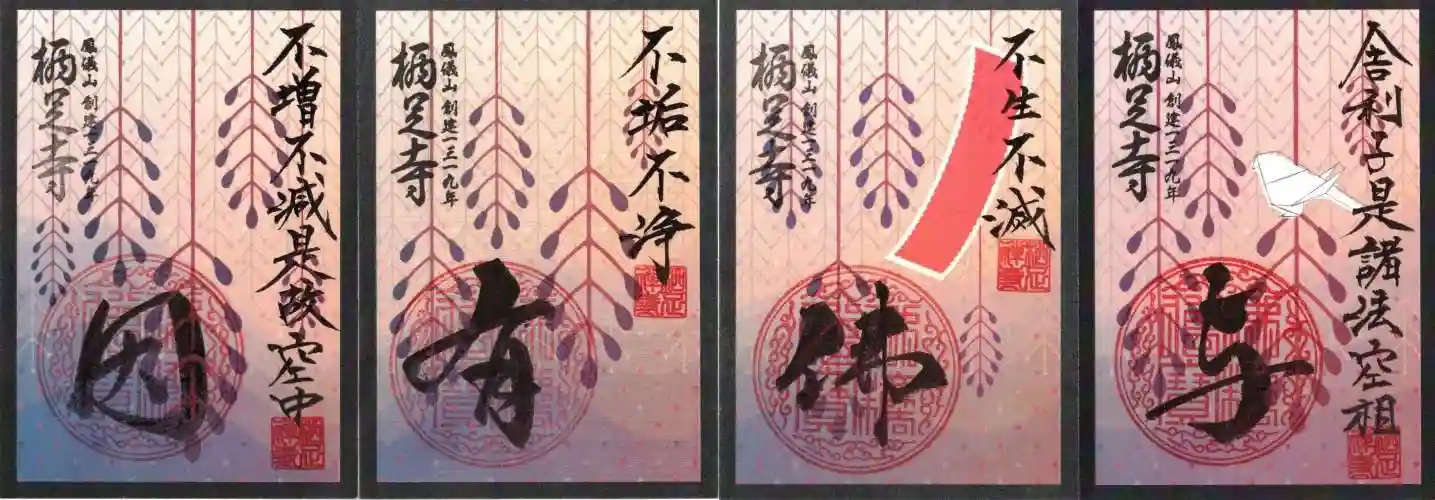 舎利子是諸法空相
与
鳳儀山 創建一三一九年
栖足寺
不生不滅
佛
鳳儀山 創建一三一九年
栖足寺
不垢不浄
有
鳳儀山 創建一三一九年
栖足寺
不増不減是故空中
因
鳳儀山 創建一三一九年
栖足寺